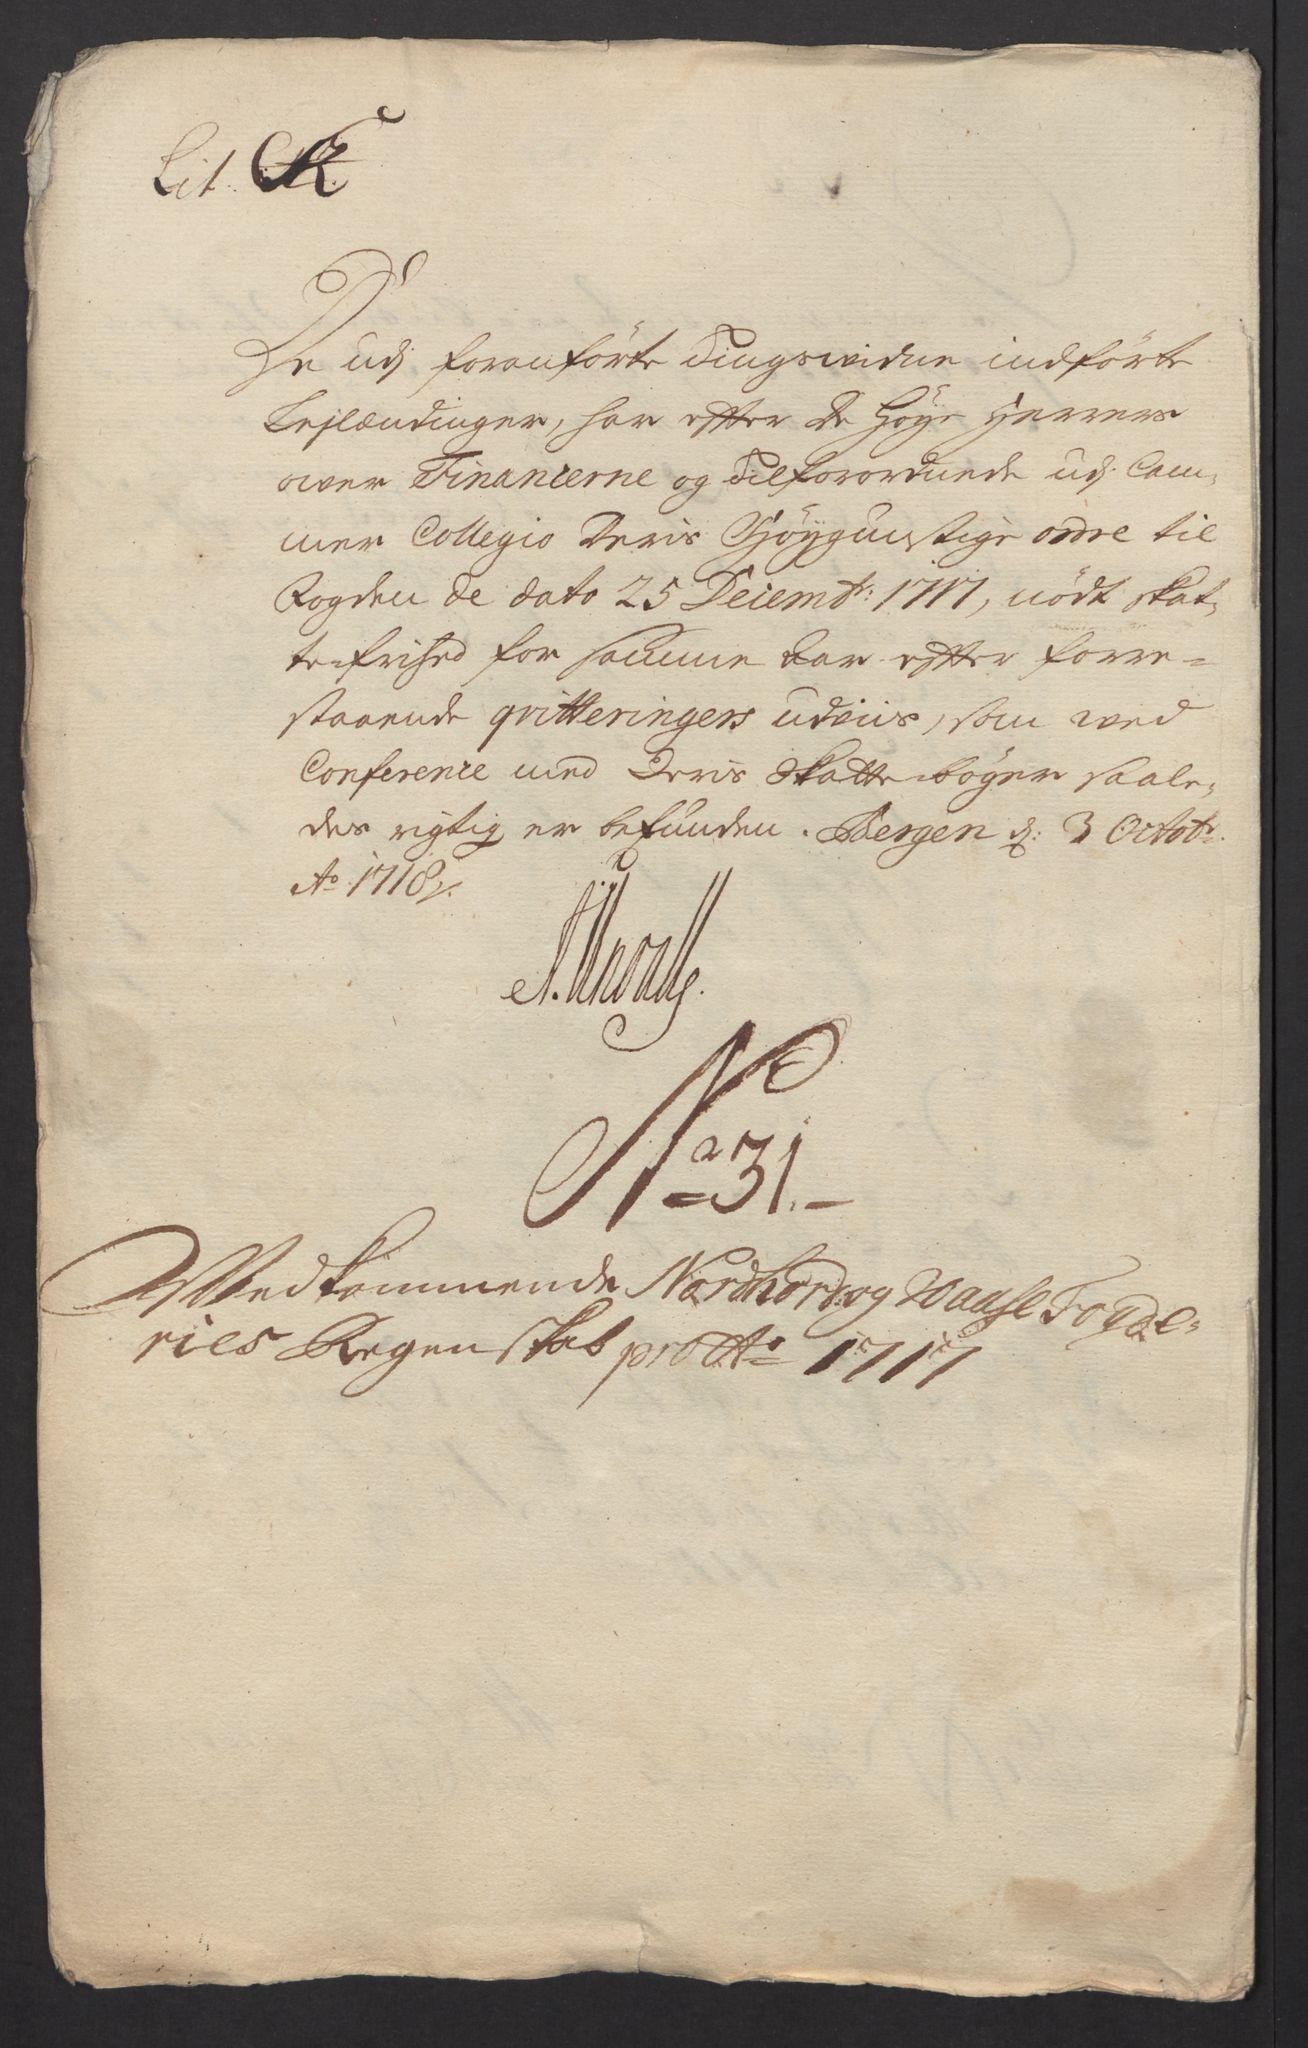 Lit. K
De udj foranförte Tingsvidne indförte
Lejlændinger, har efter De Höye Herrers
over Financerne og Tilforordnede udj Cam,
mer Collegio Deris Höygunstige ordre til
Fogden de dato 25 Decembr: 1717, nödt skat,
te-frihed for samme Aar efter forre-
staaende qvitteringers udviis, som ved
Conference med Deris Skattebøger saale,
des rigtig er befunden. Bergen d: 3 Octobr.
Ao 1718.
No 31.
Vedkommende Nordhord: og Waasse Fogde-
ries Regenskab pro Ao 1717